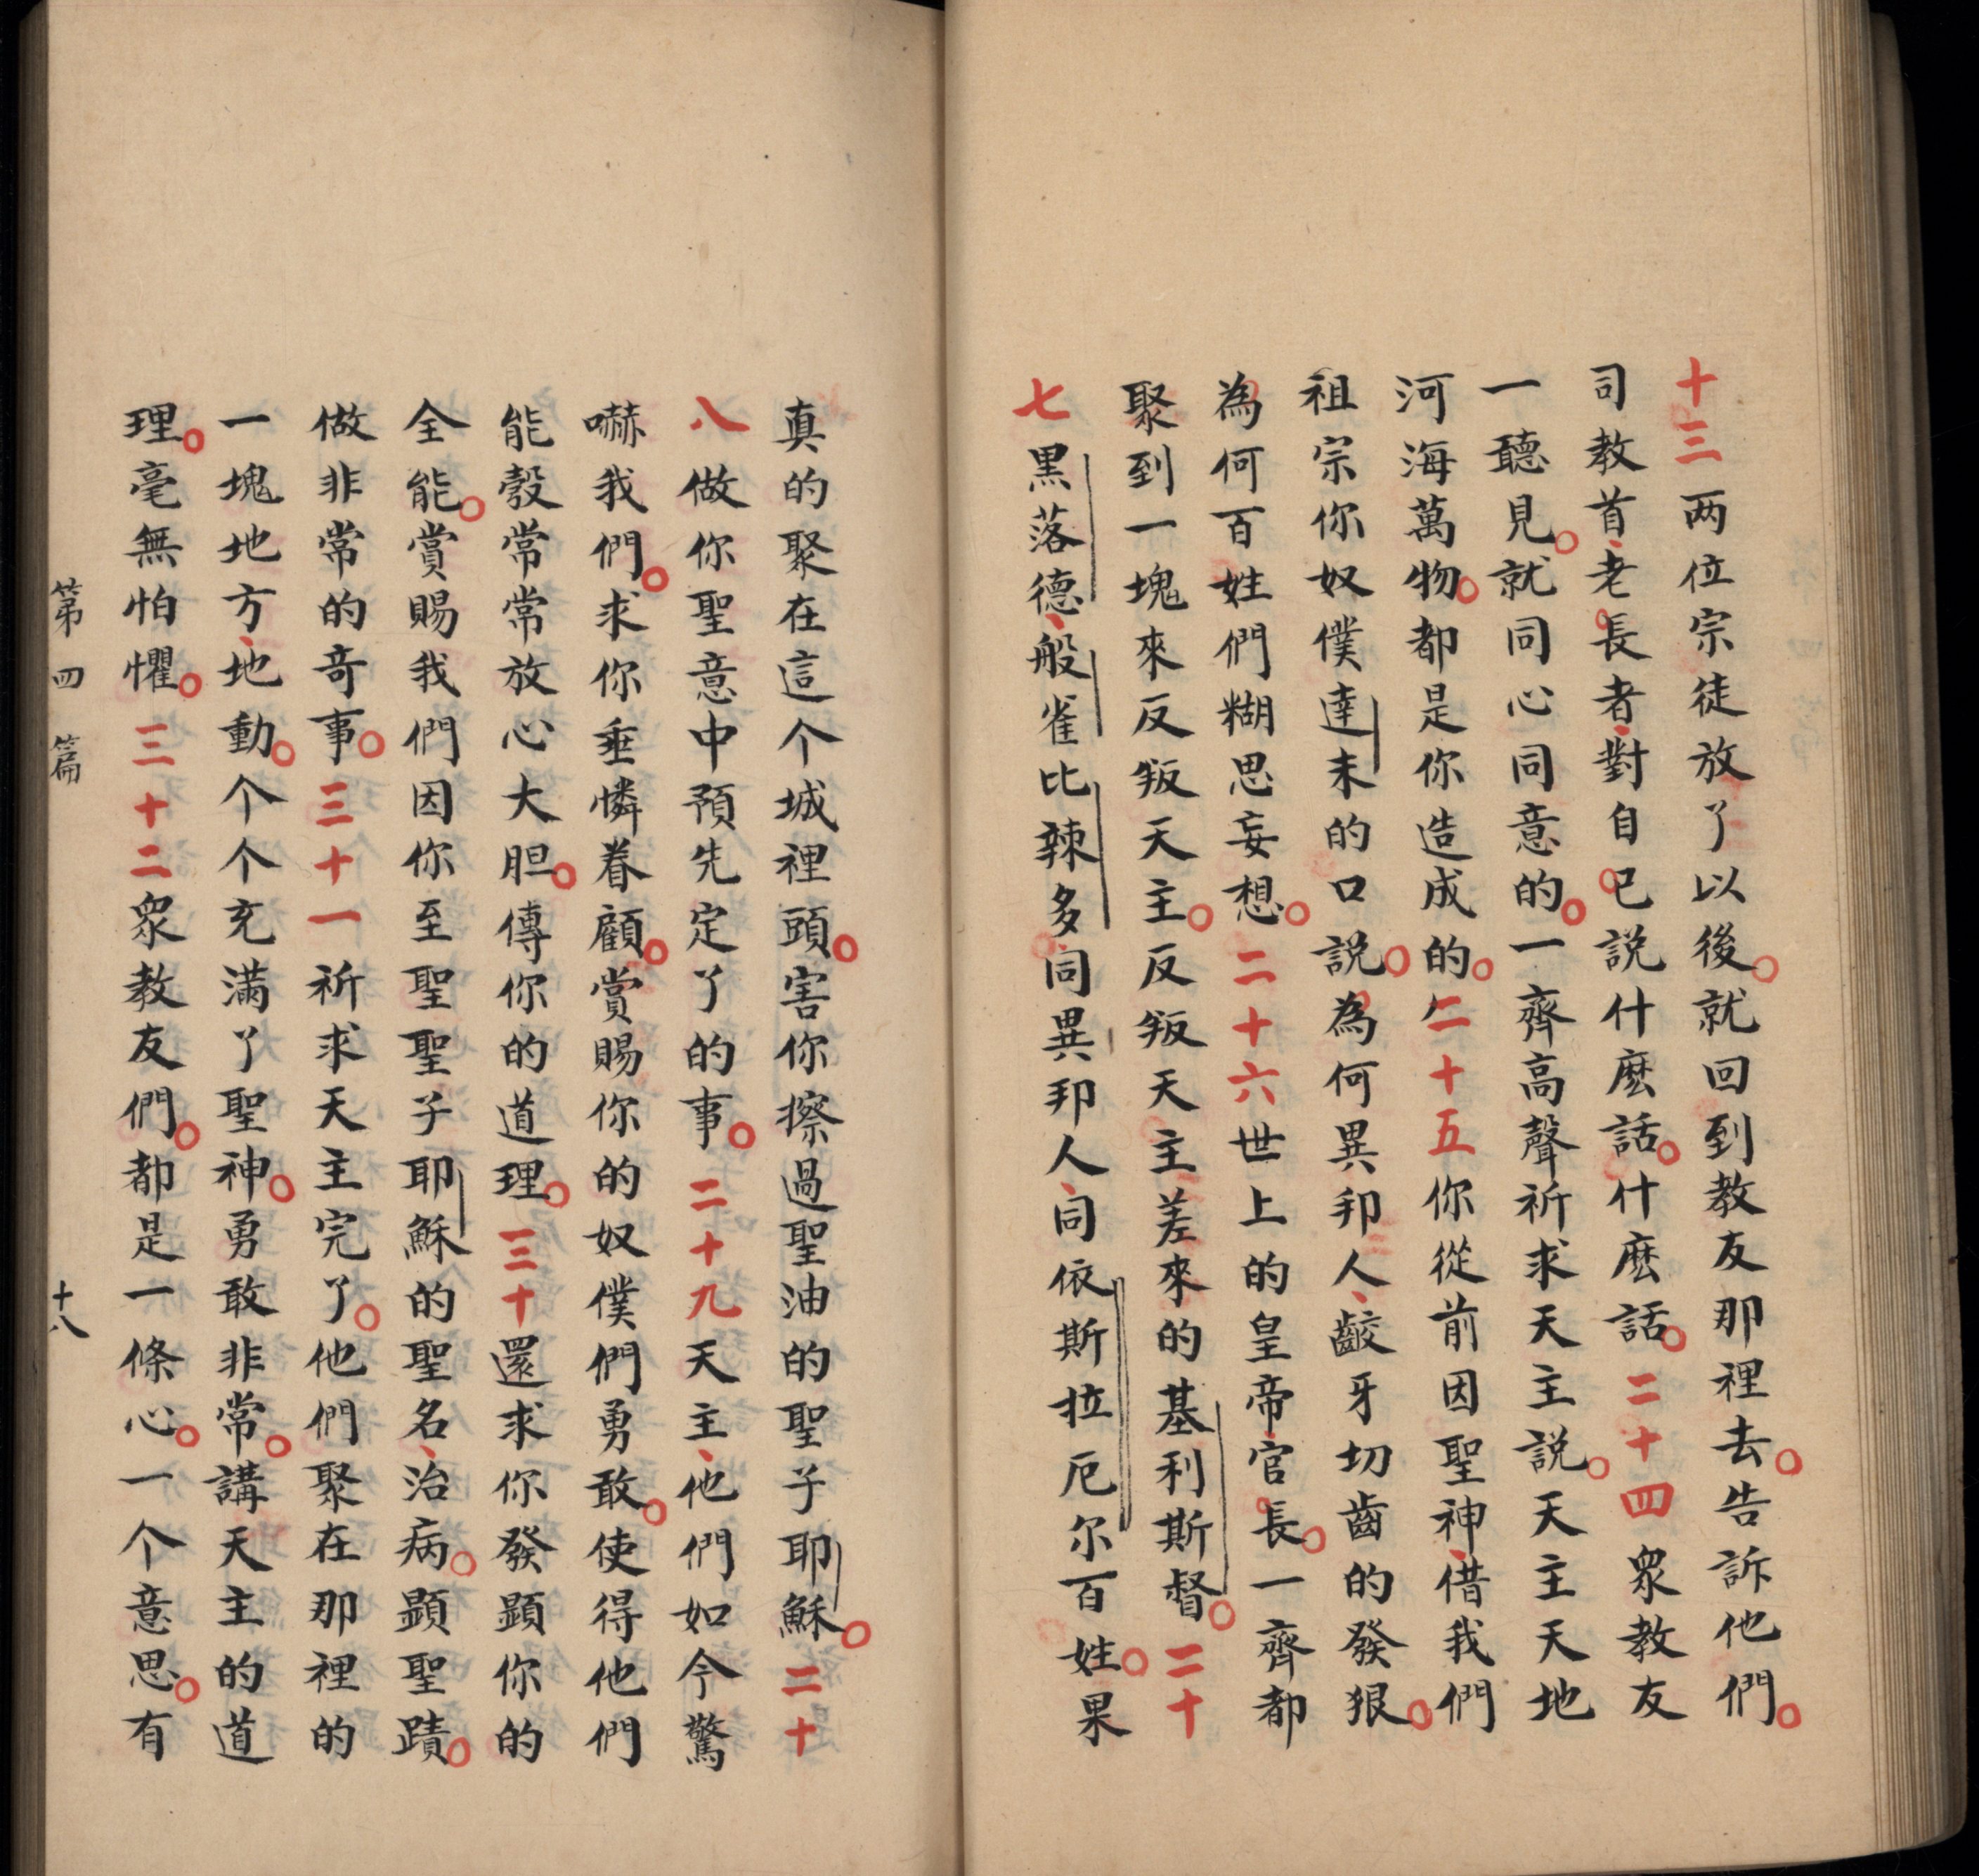 十三两位宗徒放了以後。就回到教友那裡去。告訴他們。
司教首、老長者、對自己説什麽話。什麽話。二十四眾教友
一聽見。就同心同意的。一齊高聲祈求天主説。天主天地
河海萬物。都是你造成的。二十五你從前因聖神、借我們
祖宗你奴僕達未的口説。為何異邦人、齩牙切齒的發狠。
為何百姓們糊思妄想。二十六世上的皇帝、官長。一齊都
聚到一塊來反叛天主。反叛天主差來的基利斯督。二十
七黑落德、般雀比辣多、同異邦人、同依斯拉厄尔百姓。果
真的聚在這个城裡頭。害你擦過聖油的聖子耶穌。二十
八做你聖意中預先定了的事。二十九天主、他們如今驚
嚇我們。求你垂憐眷顧。賞賜你的奴僕們勇敢。使得他們
能彀常常放心大胆。傳你的道理。三十還求你發顕你的
全能。賞賜我們因你至聖聖子耶穌的聖名、治病。顕聖蹟。
做非常的奇事。三十一祈求天主完了。他們聚在那裡的
一塊地方、地動。个个充滿了聖神。勇敢非常。講天主的道
理。毫無怕懼。三十二眾教友們。都是一條心。一个意思。有
第四篇 十八